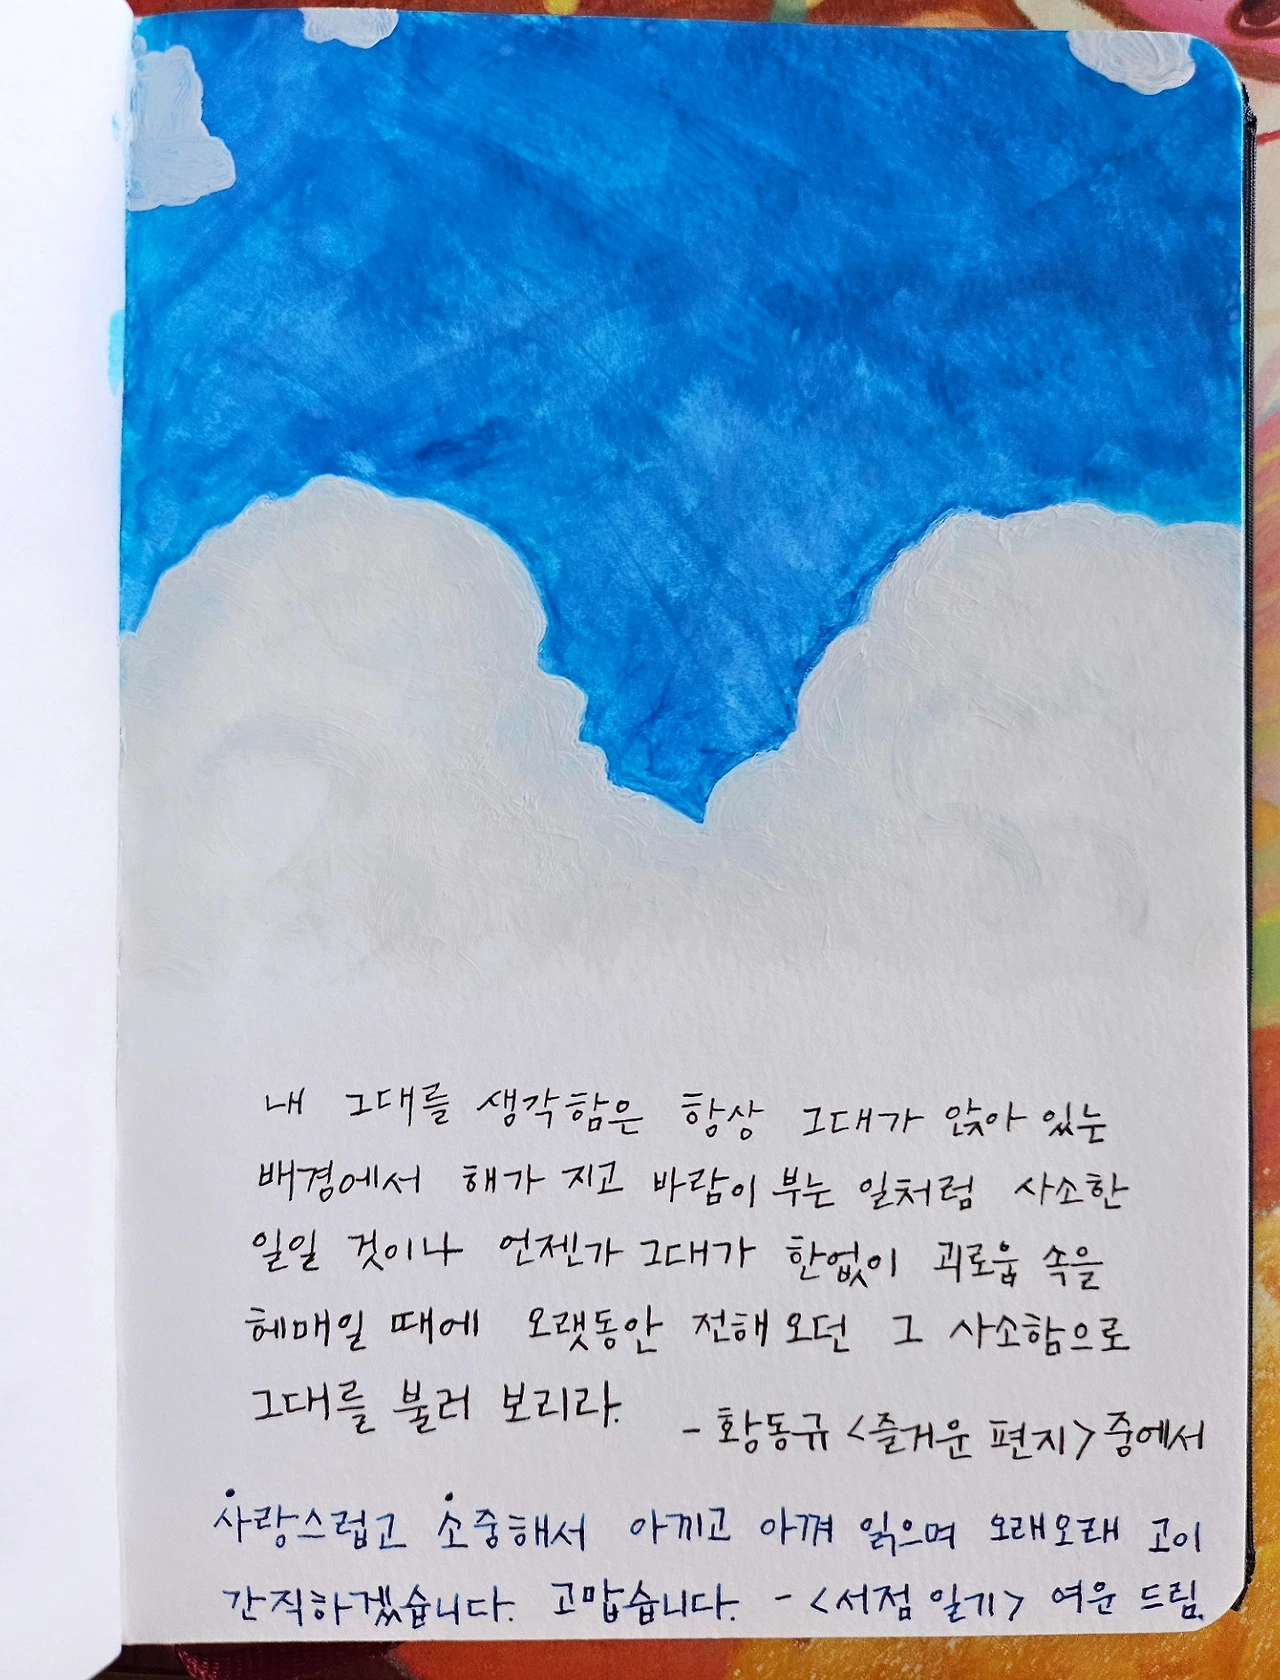 내 그대를 생각함은 항상 그대가 앉아 있는
배경에서 해가 지고 바람이 부는 일처럼 사소한
일일 것이나 언젠가 그대가 한없이 괴로움 속을
헤매일 때에 오랫동안 전해 오던 그 사소함으로
그대를 불러 보리라.
- 황동규 <즐거운 편지> 중에서
사랑스럽고 소중해서 아끼고 아껴 읽으며 오래오래 고이
간직하겠습니다. 고맙습니다. - <서점 일기> 여운 드림.